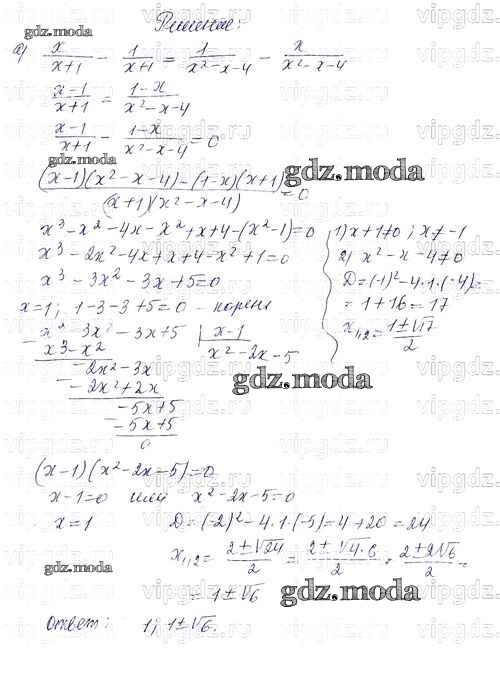 Решение:
gdz.moda
а) x/(x+1) - 1/(x+1) = 1/(x²-x-4) - x/(x²-x-4)
(x-1)/(x+1) = (1-x)/(x²-x-4)
(x-1)/(x+1) - (1-x)/(x²-x-4) = 0
gdz.moda
((x-1)(x²-x-4)-(1-x)(x+1))/((x+1)(x²-x-4)) = 0
gdz.moda
x³-x²-4x-x²+x+4-(x²-1)=0
x³-2x²-4x+x+4-x²+1=0
x³-3x²-3x+5=0
x=1; 1-3-3+5=0 - корень
1) x+1≠0; x≠-1
2) x²-x-4≠0
D=(-1)²-4·1·(-4)=
=1+16=17
x₁,₂=(1±√17)/2
x³-3x²-3x+5 | x-1
x³-x² | x²-2x-5
-2x²-3x
gdz.moda
-2x²+2x
-5x+5
-5x+5
0
(x-1)(x²-2x-5)=0
x-1=0 или x²-2x-5=0
x=1 D=(-2)²-4·1·(-5)=4+20=24
x₁,₂=(2±√24)/2=(2±√4·6)/2=(2±2√6)/2=
gdz.moda
=1±√6
gdz.moda
Ответ: 1; 1±√6.
vipgdz.ru